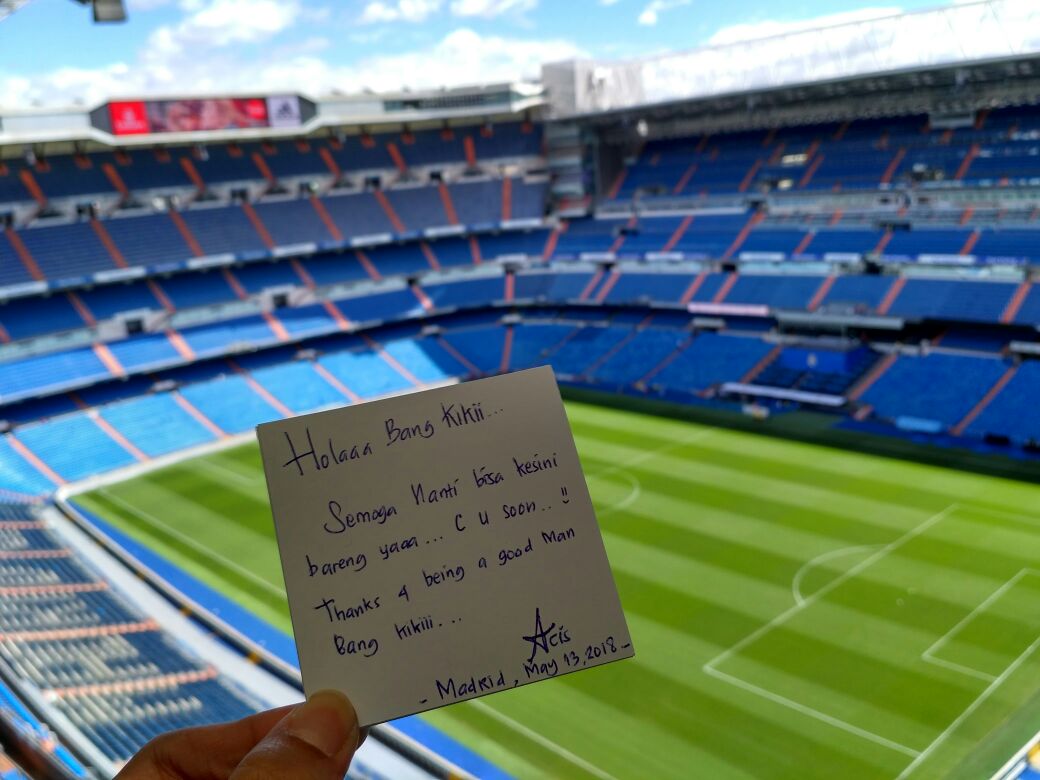 Holaaa Bang Kikii...
Semoga Nanti bisa kesini
bareng yaaa... C U soon.. !!
Thanks 4 being a good Man
Bang Kikiii...
Acis
- Madrid, May 13, 2018 -